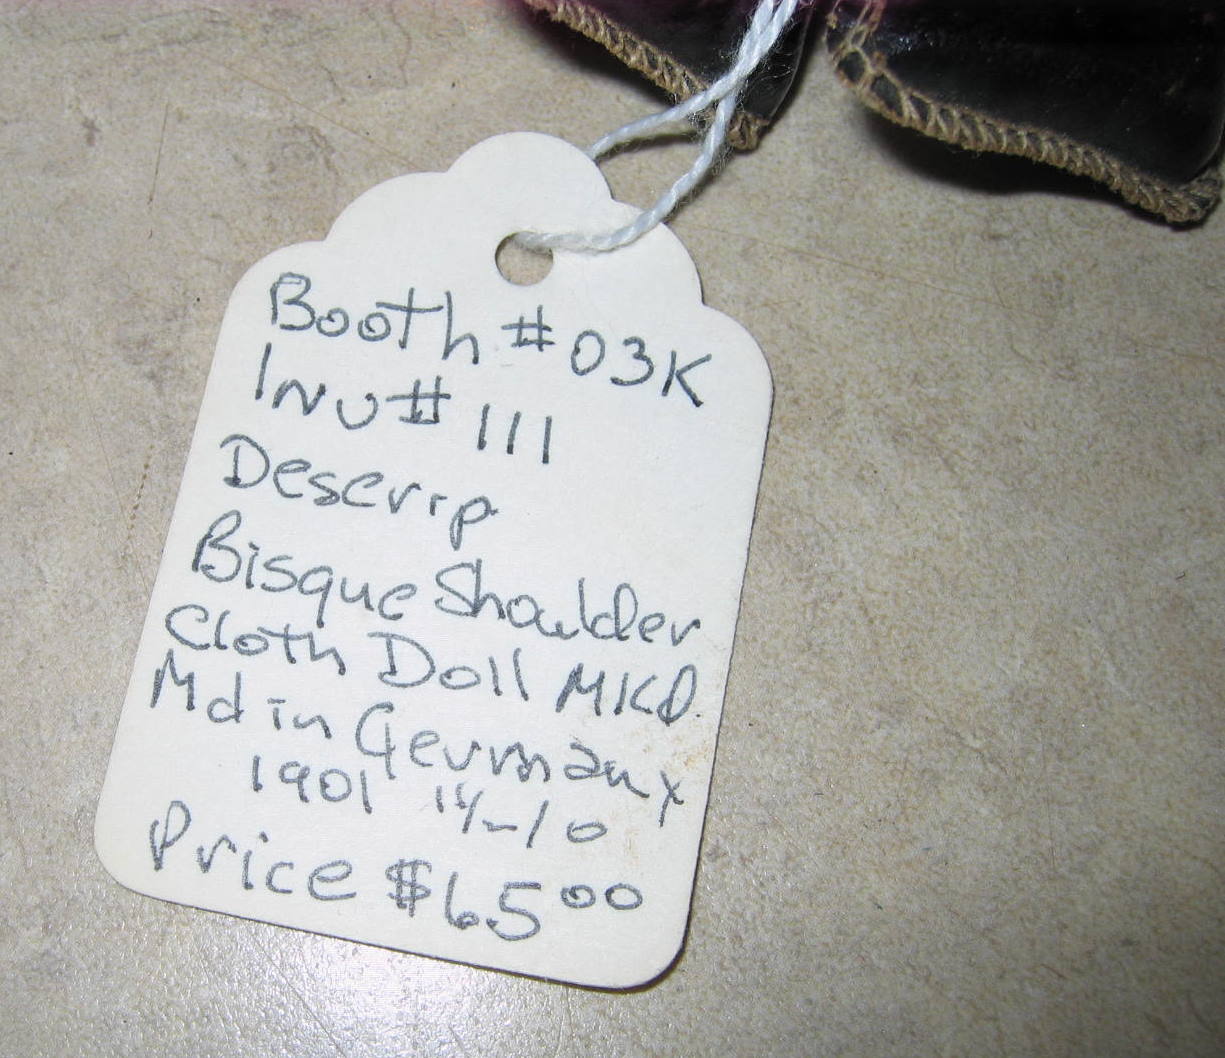 Booth # 03K
Inv# 111
Descrip
Bisque Shoulder
Cloth Doll MKD
Md in Germany
1901
Price $65⁰⁰